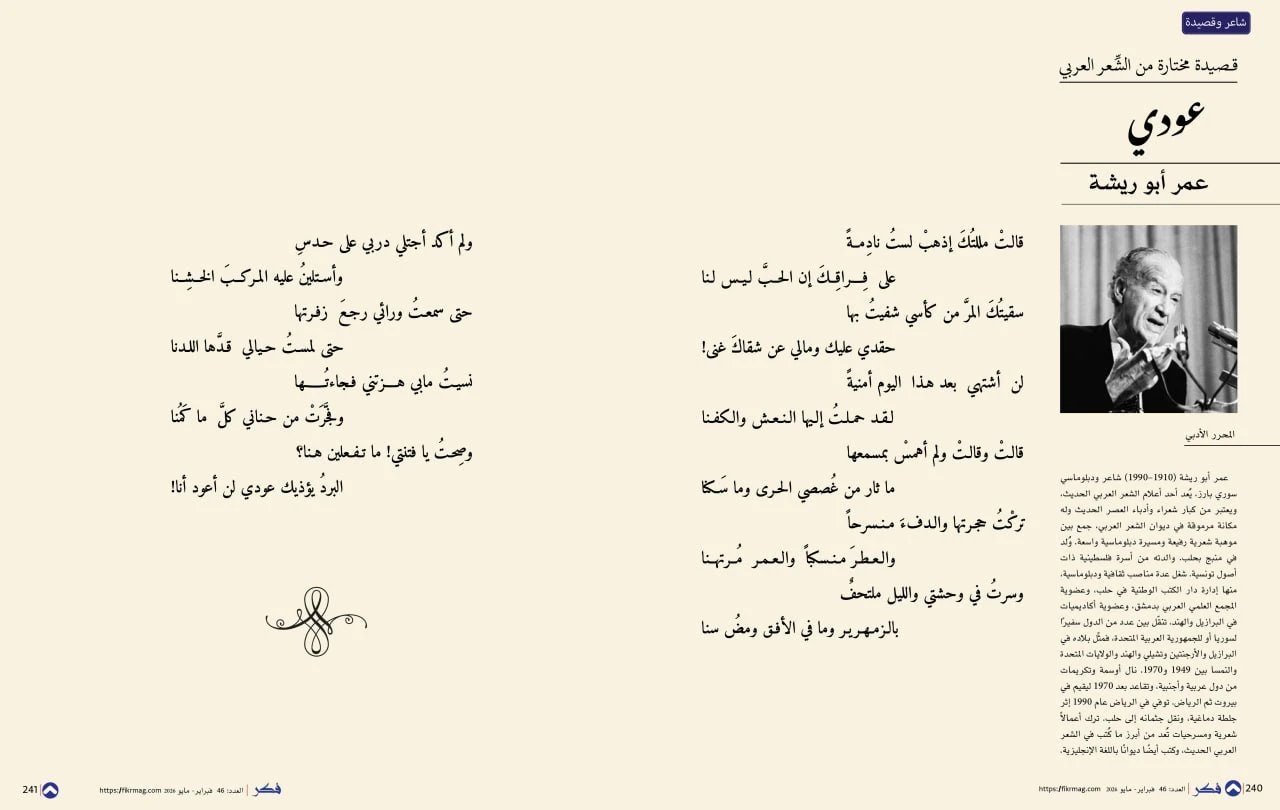 شاعر وقصيدة
قصيدة مختارة من الشِّعر العربي
عودي
عمر أبو ريشة
المحرر الأدبي
عمر أبو ريشة (1910-1990) شاعر ودبلوماسي
سوري بارز، يُعد أحد أعلام الشعر العربي الحديث،
ويعتبر من كبار شعراء وأدباء العصر الحديث وله
مكانة مرموقة في ديوان الشعر العربي، جمع بين
موهبة شعرية رفيعة ومسيرة دبلوماسية واسعة. وُلد
في منبج بحلب، والدته من أسرة فلسطينية ذات
أصول تونسية. شغل عدة مناصب ثقافية ودبلوماسية،
منها إدارة دار الكتب الوطنية في حلب، وعضوية
المجمع العلمي العربي بدمشق، وعضوية أكاديميات
في البرازيل والهند، تنقّل بين عدد من الدول سفيرًا
لسوريا أو للجمهورية العربية المتحدة، فمثّل بلاده في
البرازيل والأرجنتين وتشيلي والهند والولايات المتحدة
والنمسا بين 1949 و1970. نال أوسمة وتكريمات
من دول عربية وأجنبية، وتقاعد بعد 1970 ليقيم في
بيروت ثم الرياض. توفي في الرياض عام 1990 إثر
جلطة دماغية، ونقل جثمانه إلى حلب. ترك أعمالاً
شعرية ومسرحيات تُعد من أبرز ما كُتب في الشعر
العربي الحديث، وكتب أيضًا ديوانًا باللغة الإنجليزية.
قالتْ مللتُكَ إذهبْ لستُ نادِمةً
على فِراقِكَ إن الحبَّ ليس لنا
سقيتُكَ المرَّ من كأسي شفيتُ بها
حقدي عليك ومالي عن شقاكَ غنى!
لن أشتهي بعد هذا اليوم أمنيةً
لقد حملتُ إليها النعش والكفنا
قالتْ وقالتْ ولم أهمسْ بمسمعها
ما ثار من غُصصي الحرى وما سَكنا
تركْتُ حجرتها والدفءَ منسرحاً
والعطرَ منسكباً والعمر مُرتهنا
وسرتُ في وحشتي والليل ملتحفٌ
بالزمهرير وما في الأفق ومضُ سنا
ولم أكد أجتلي دربي على حدسِ
وأستلينُ عليه المركبَ الخشِنا
حتى سمعتُ ورائي رجعَ زفرتها
حتى لمستُ حيالي قدَّها اللدنا
نسيتُ مابي هزتني فجاءتُها
وفجَّرَتْ من حناني كلَّ ما كَمُنا
وصِحتُ يا فتنتي! ما تفعلين هنا؟
البردُ يؤذيك عودي لن أعود أنا!
240 فكر العدد: 46 فبراير - مايو 2026 https://fikrmag.com
فكر العدد: 46 فبراير - مايو 2026 https://fikrmag.com 241